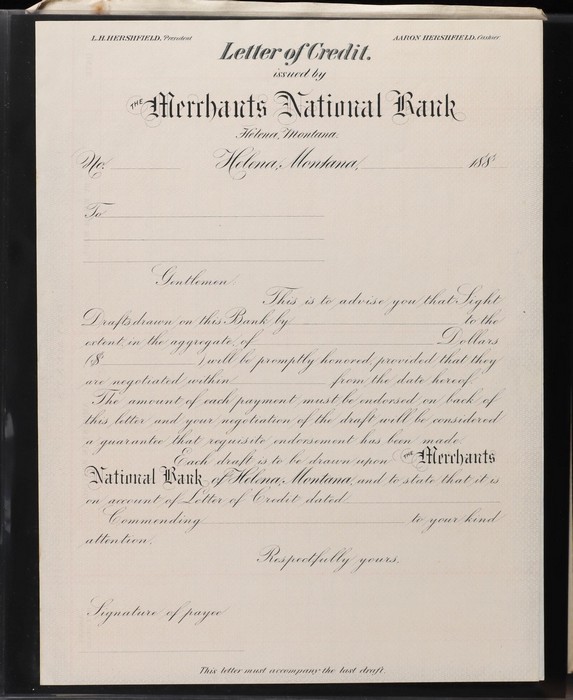 L.H. HERSHFIELD, President
AARON HERSHFIELD, Cashier
Letter of Credit.
issued by
THE Merchants National Bank
Helena, Montana.
No.
Helena, Montana, 188
To
Gentlemen
This is to advise you that Sight
Drafts drawn on this Bank by to the
extent in the aggregate of Dollars
($ ) will be promptly honored, provided that they
are negotiated within from the date hereof.
The amount of each payment must be endorsed on back of
this letter and your negotiation of the draft will be considered
a guarantee that requisite endorsement has been made
Each draft is to be drawn upon THE Merchants
National Bank of Helena, Montana, and to state that it is
on account of Letter of Credit dated
Commending to your kind
attention.
Respectfully yours.
Signature of payee
This letter must accompany the last draft.